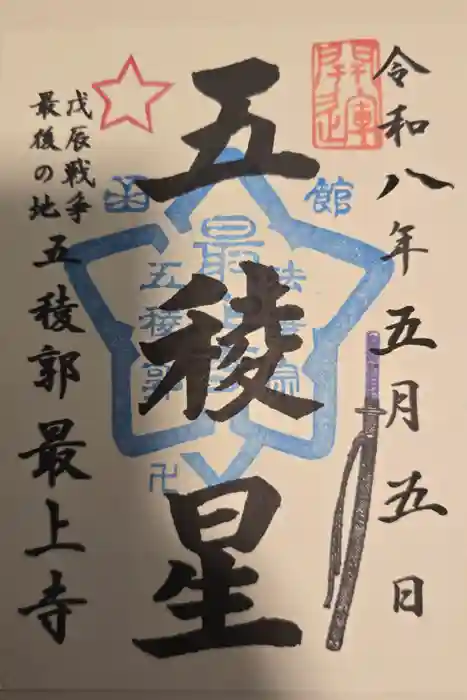 令和八年五月五日
開運
五稜星
函館
最上寺
法華宗
五稜郭
卍
戊辰戦争
最後の地
五稜郭最上寺